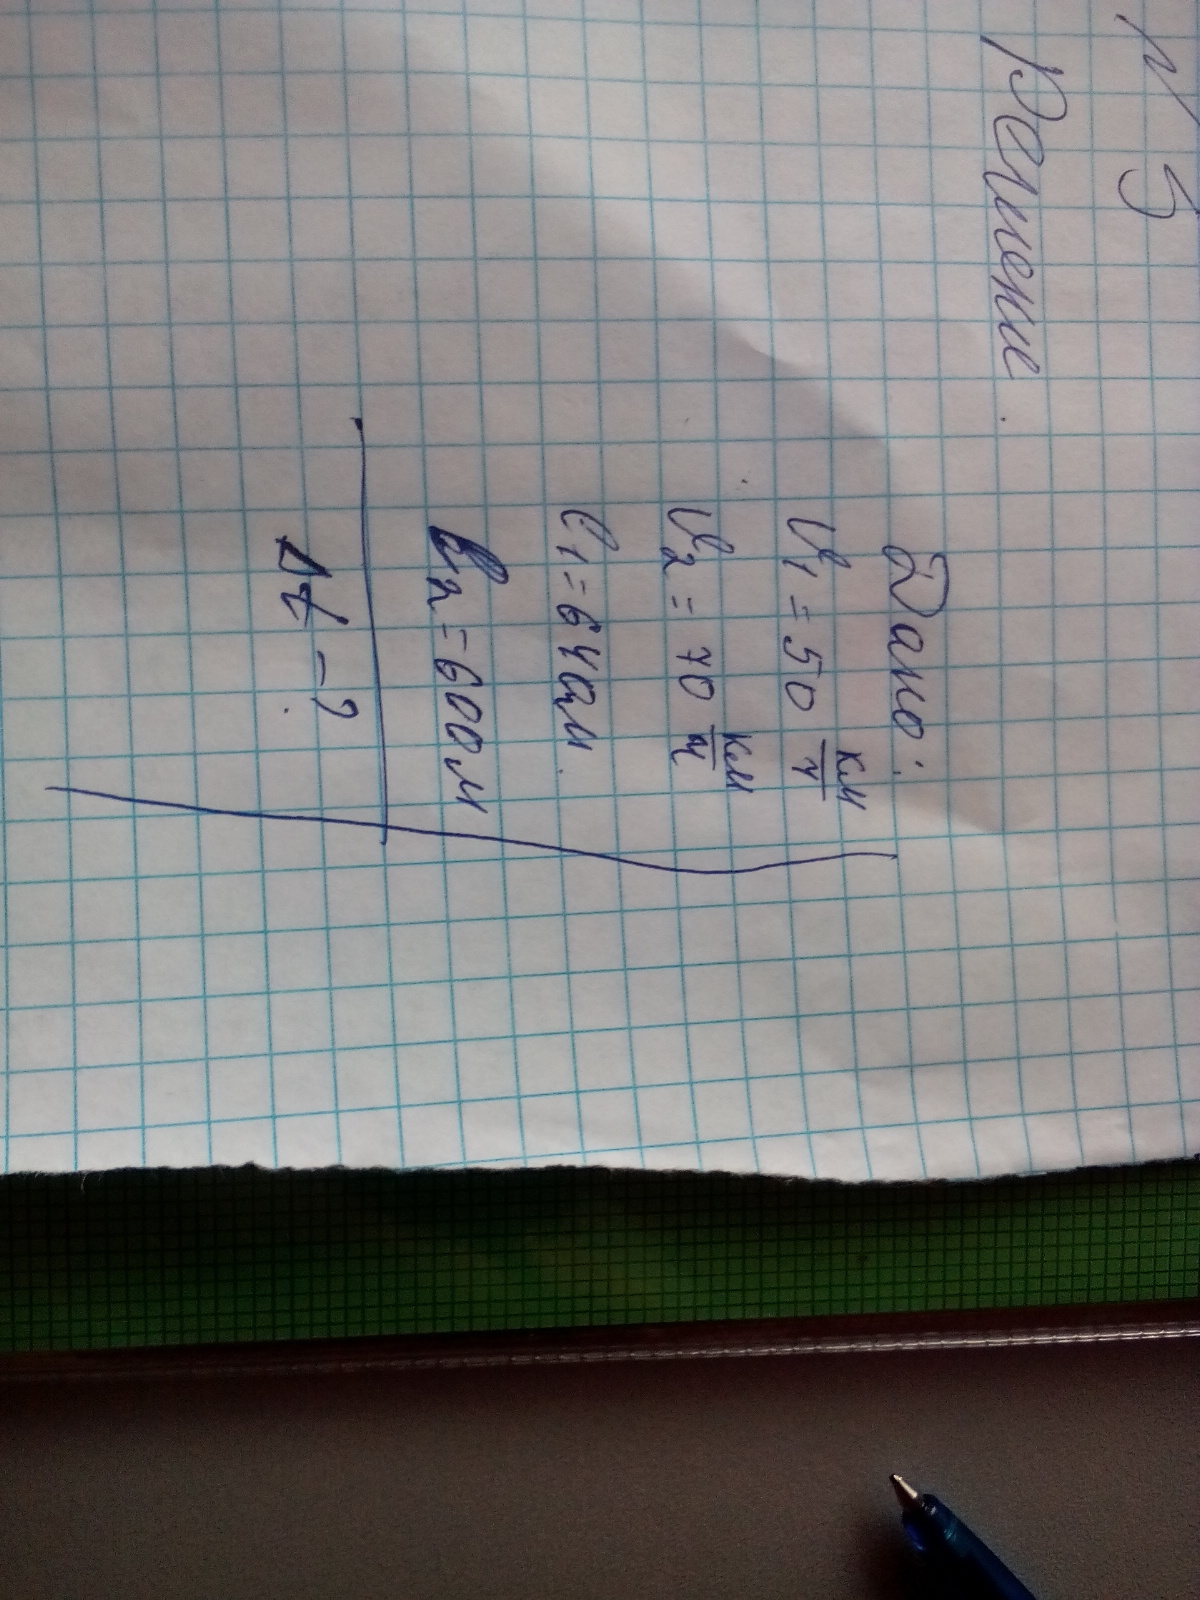 N 5
Решение.
Дано:
V₁ = 50 км/ч
V₂ = 70 км/ч
l₁ = 640м.
l₂ = 600м
Δt - ?